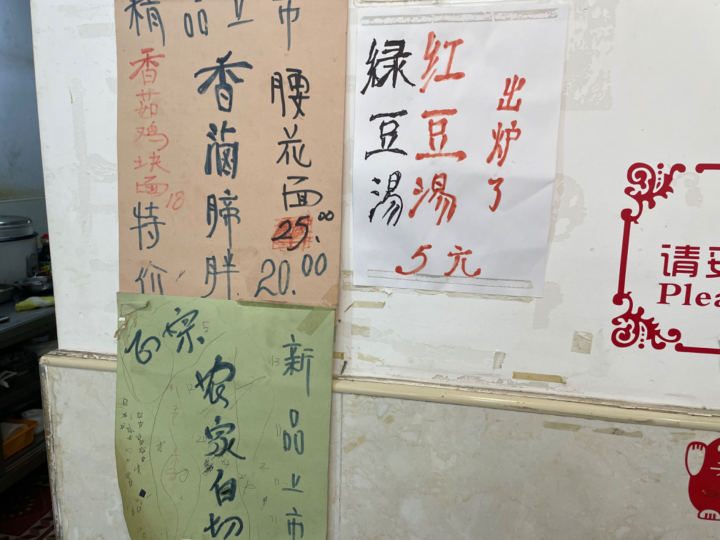 精品上市
腰花面
25.00
20.00
香滷蹄胖
特价
香菇鸡块面
18
出炉了
红豆湯
绿豆湯
5元
新品上市
正宗
农家白切
请
Plea